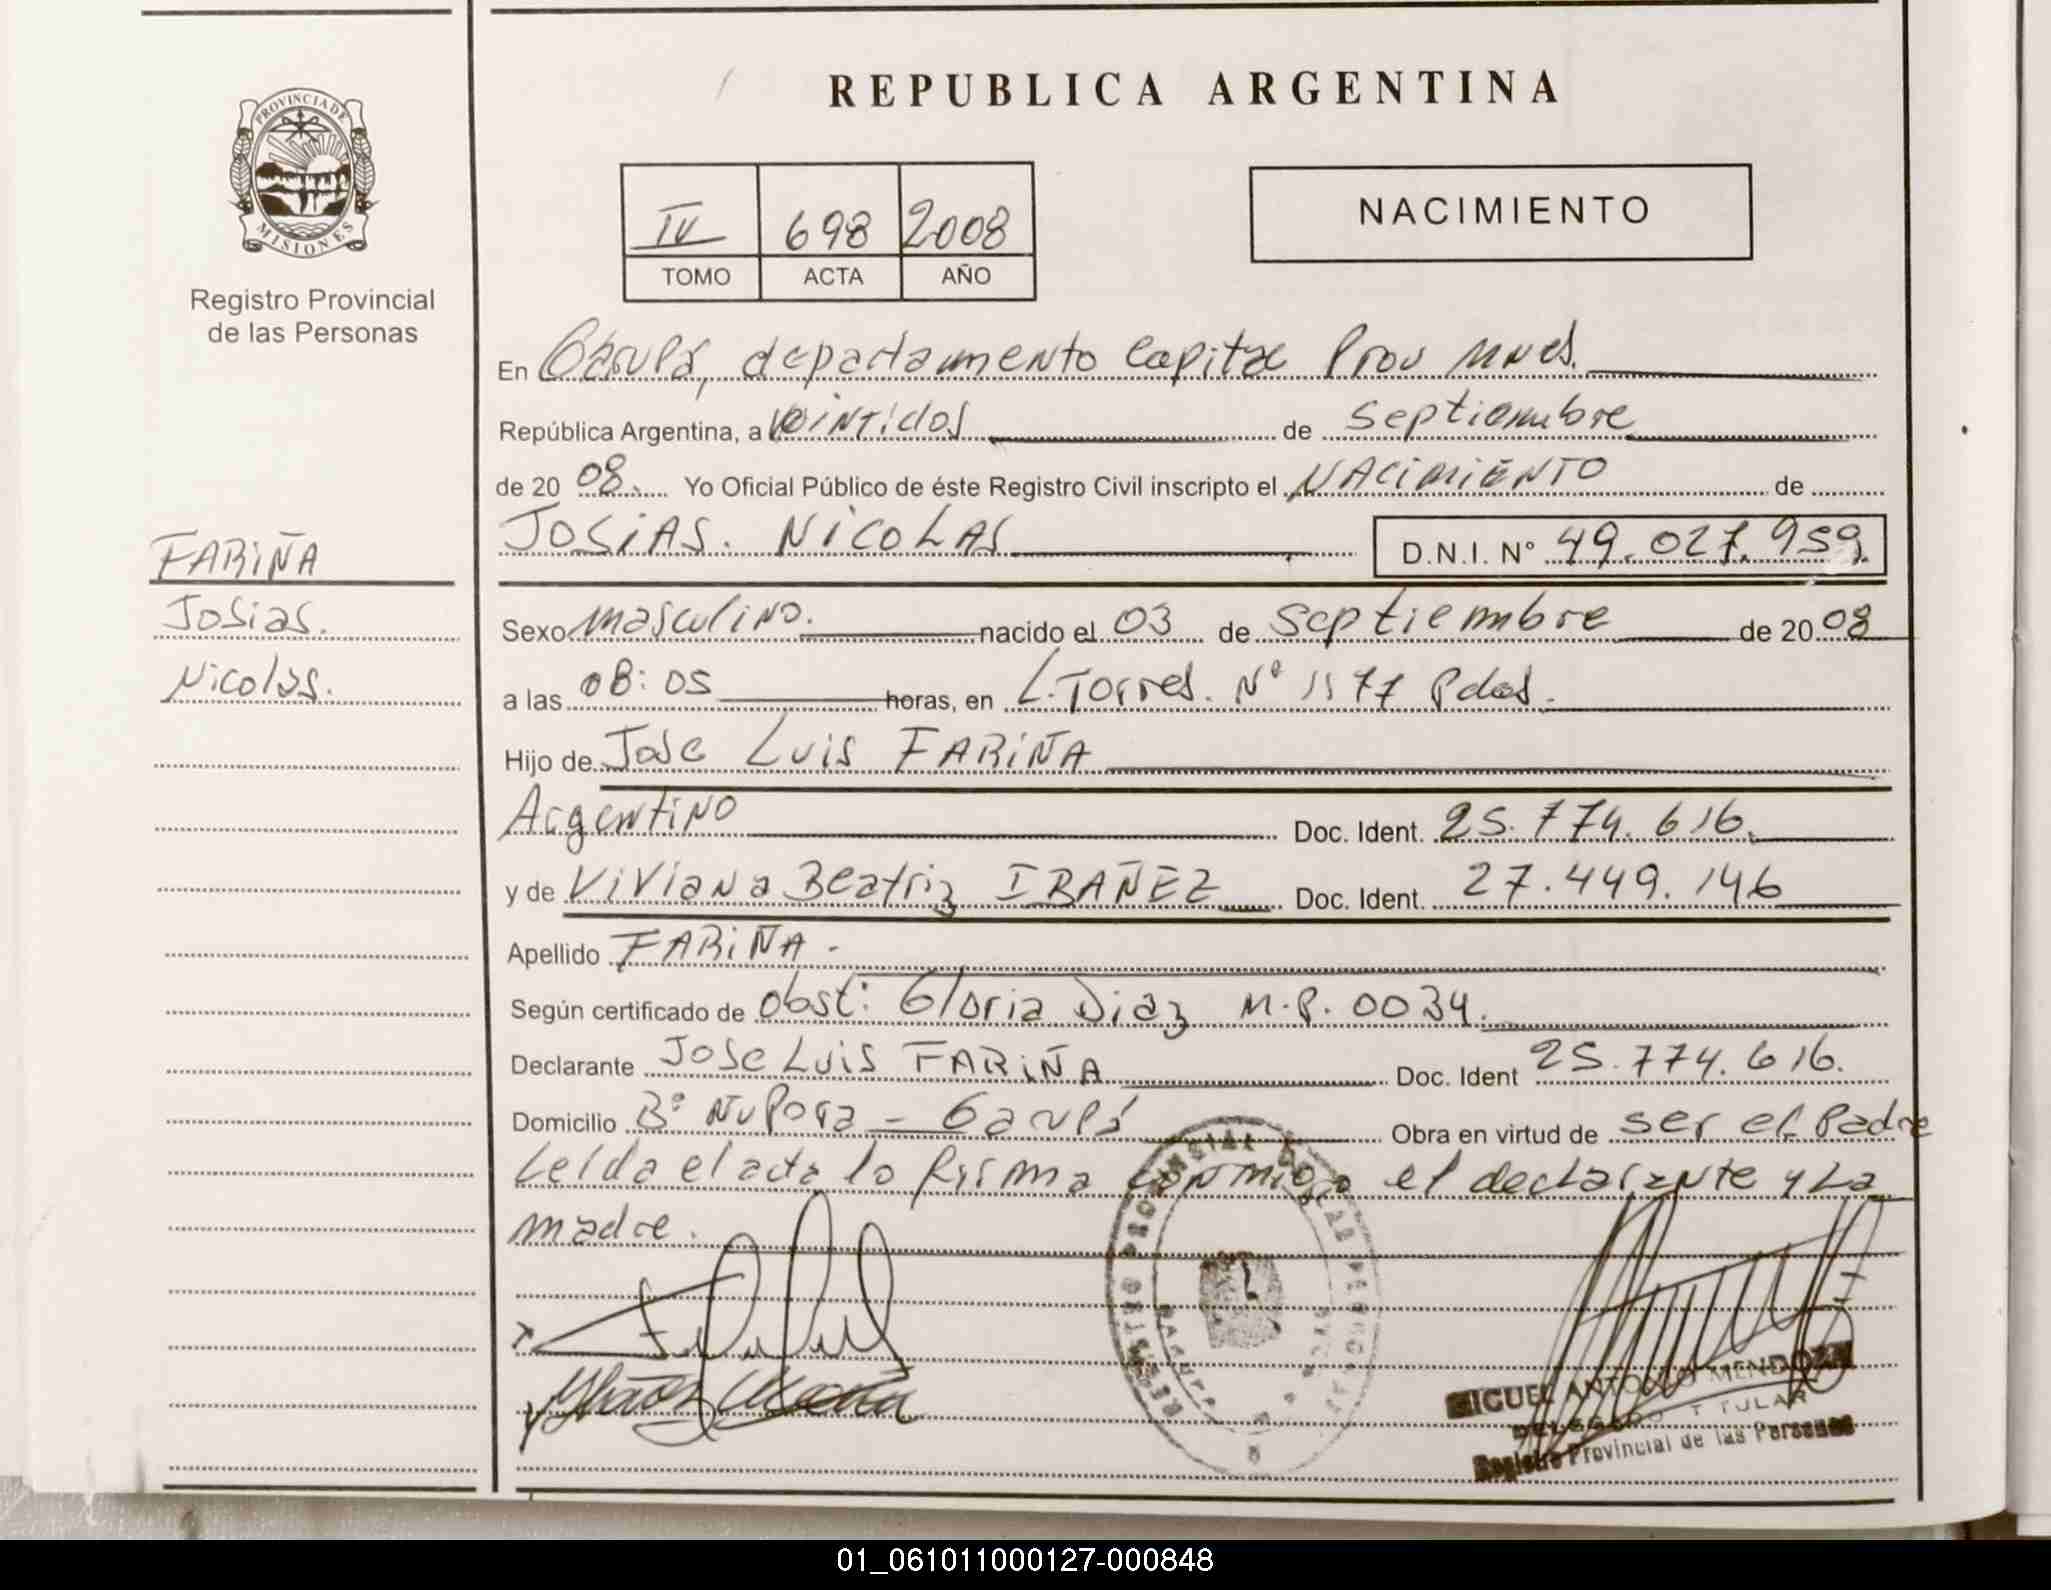 REPUBLICA ARGENTINA
PROVINCIA DE
MISIONES
Registro Provincial
de las Personas
IV 698 2008
TOMO ACTA AÑO
NACIMIENTO
En Garupá, departamento Capital Prov Mnes.
República Argentina, a veintidos de septiembre
de 2008. Yo Oficial Público de éste Registro Civil inscripto el NACIMIENTO de
JOSIAS. NICOLAS D.N.I. Nº 49.027.959.
FARIÑA
Josias.
Nicolas.
Sexo masculino. nacido el 03 de septiembre de 2008
a las 08:05 horas, en L. Torres. Nº 1177 Pdas.
Hijo de Jose Luis FARIÑA
Argentino Doc. Ident. 25.774.616.
y de Viviana Beatriz IBAÑEZ Doc. Ident. 27.449.146
Apellido FARIÑA -
Según certificado de obst: Gloria Diaz M.P. 0034.
Declarante Jose Luis FARIÑA Doc. Ident 25.774.616.
Domicilio Bº Ñu Pora - Garupá Obra en virtud de ser el Padre
Leida el acta la firma conmigo el declarante y la
madre.
MIGUEL ANTONIO MENDOZA
DELEGADO TITULAR
Registro Provincial de las Personas
01_061011000127-000848